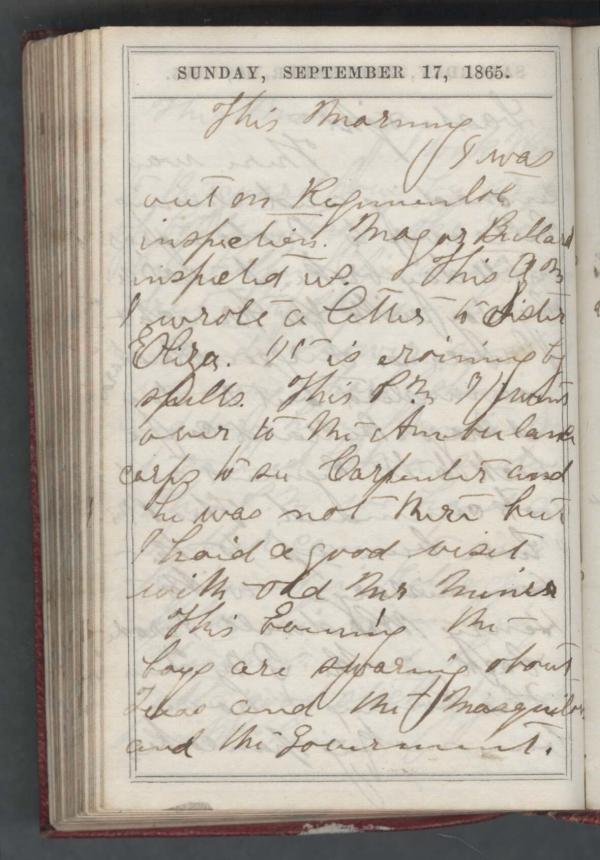 SUNDAY, SEPTEMBER 17, 1865.
This Morning
I was
out on Regimental
inspection. Magor Bullard
inspected us. This A m
I wrote a letter to Sister
Eliza. It is raining by
spells. This P m I went
over to the Ambulance
corps to see Carpenter and
he was not there but
I haid a good visit
with old Mr Miner
This Evening the
boys are swaring about
Texas and the Masquitos
and the Goverment.